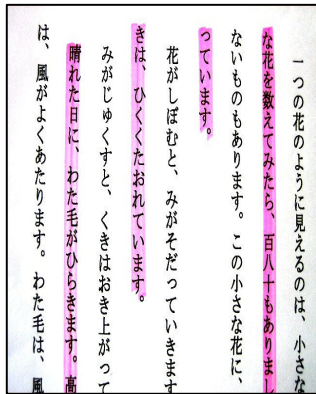 一つの花のように見えるのは、小さな
な花を数えてみたら、百八十もありまし
ないものもあります。この小さな花に、
っています。
花がしぼむと、みがそだっていきます
きは、ひくくたおれています。
みがじゅくすと、くきはおき上がって
晴れた日に、わた毛がひらきます。高
は、風がよくあたります。わた毛は、風